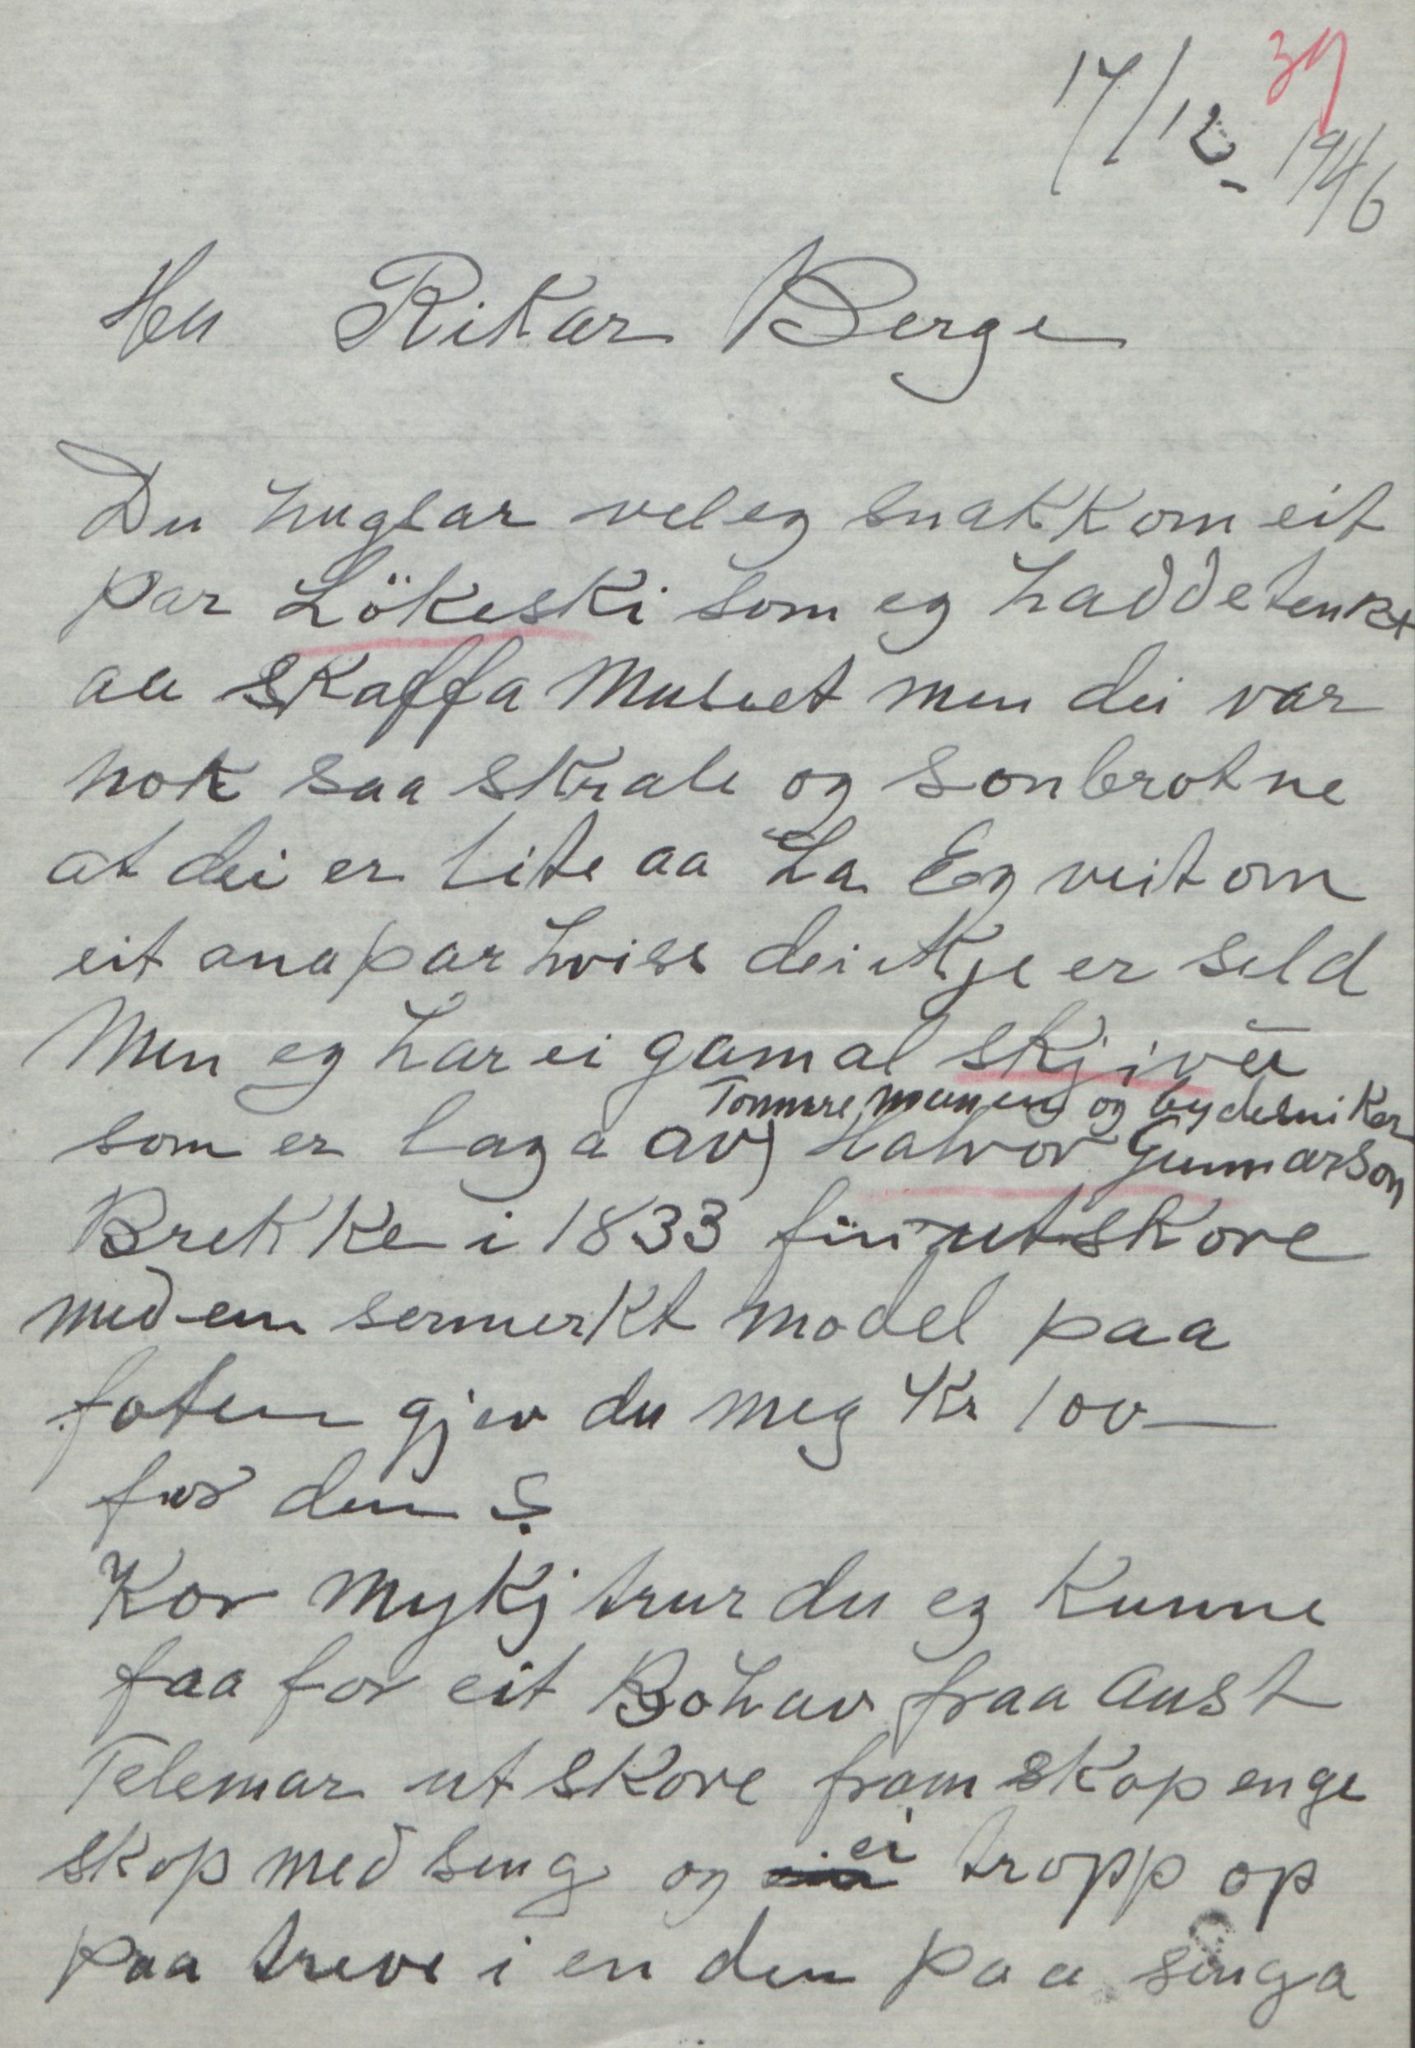 39
17/12 - 1946
Herr Rikar Berge
Du hugsar vel eg snakk om eit
par Lökeski som eg hadde tenkt
aa skaffa Museet men dei var
nok saa skrale og sonbrotne
at dei er lite aa ha Eg veit om
eit ana par hviss dei ikje er seld
Men eg har ei gamal skjive
Tommremannen og bydesniker
som er laga av Halvor Gunnarson
Brekke i 1833 fin utskore
med en sermerkt model paa
foten gjev du meg Kr 100 —
for den ?
Kor mykj trur du eg kunne
faa for eit Bohav fraa Aust
Telemar utskore framskop enge
skop med seng og ei tropp op
paa treve i enden paa senga